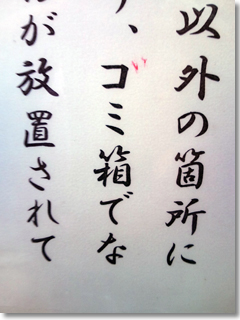 以外の箇所に
、ゴミ箱でな
が放置されて